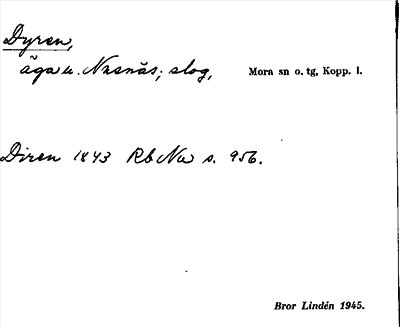 Dyren,
äga u. Nusnäs; slog, Mora sn o. tg, Kopp. l.
Diren 1843 Rb Nu s. 956.
Bror Lindén 1945.